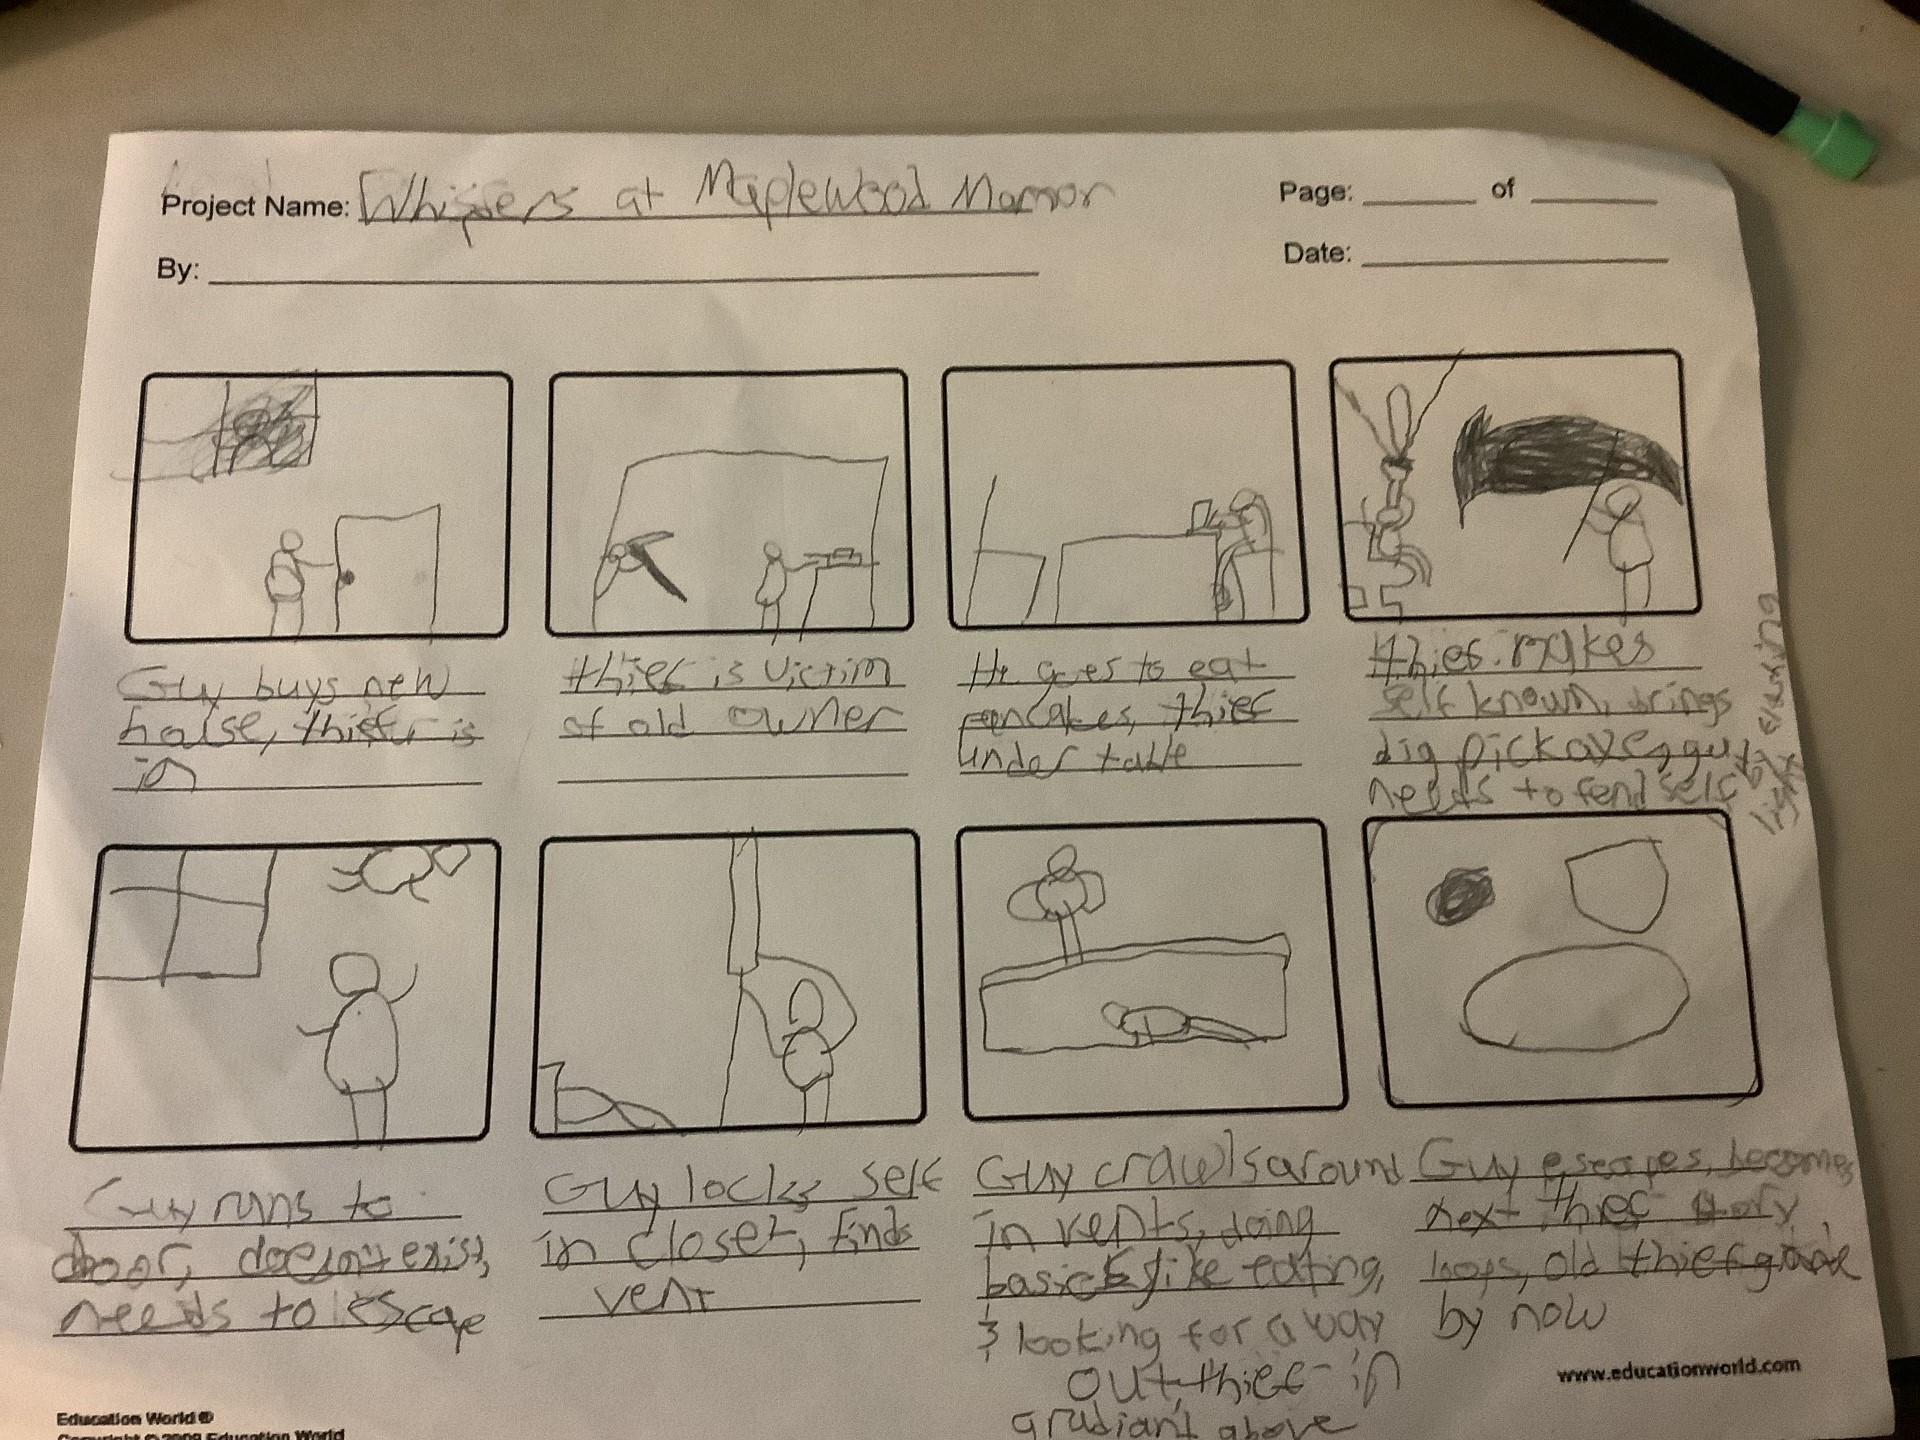 Project Name: Whispers at Maplewood Manor
Page: ______ of ______
By:
Date:
Guy buys new
house, thief is
in
thief is victim
of old owner
He goes to eat
pancakes, thief
under table
thief makes
self known, brings
big pickaxe, guy
needs to fend self
by
light
Guy runs to
door, doesn't exist,
needs to escape
Guy locks self
in closet, finds
vent
Guy crawls around
in vents, doing
basics like eating,
& looking for a way
out thief in
gradiant above
Guy escapes, becomes
next thief story
loops, old thief gone
by now
www.educationworld.com
Education World ©
Copyright © 2009 Education World